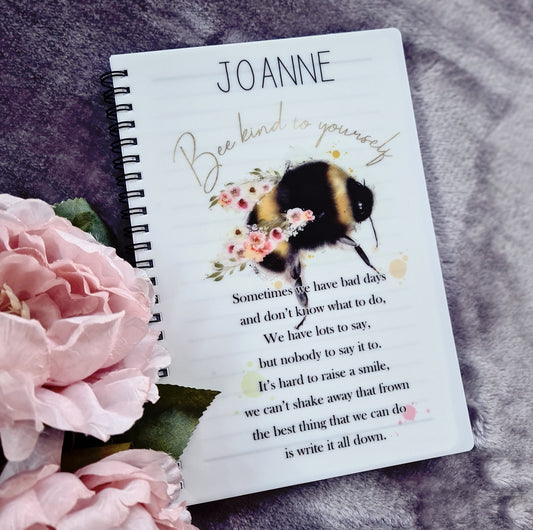 JOANNE
Bee kind to yourself
Sometimes we have bad days
and don't know what to do,
We have lots to say,
but nobody to say it to.
It's hard to raise a smile,
we can't shake away that frown
the best thing that we can do
is write it all down.